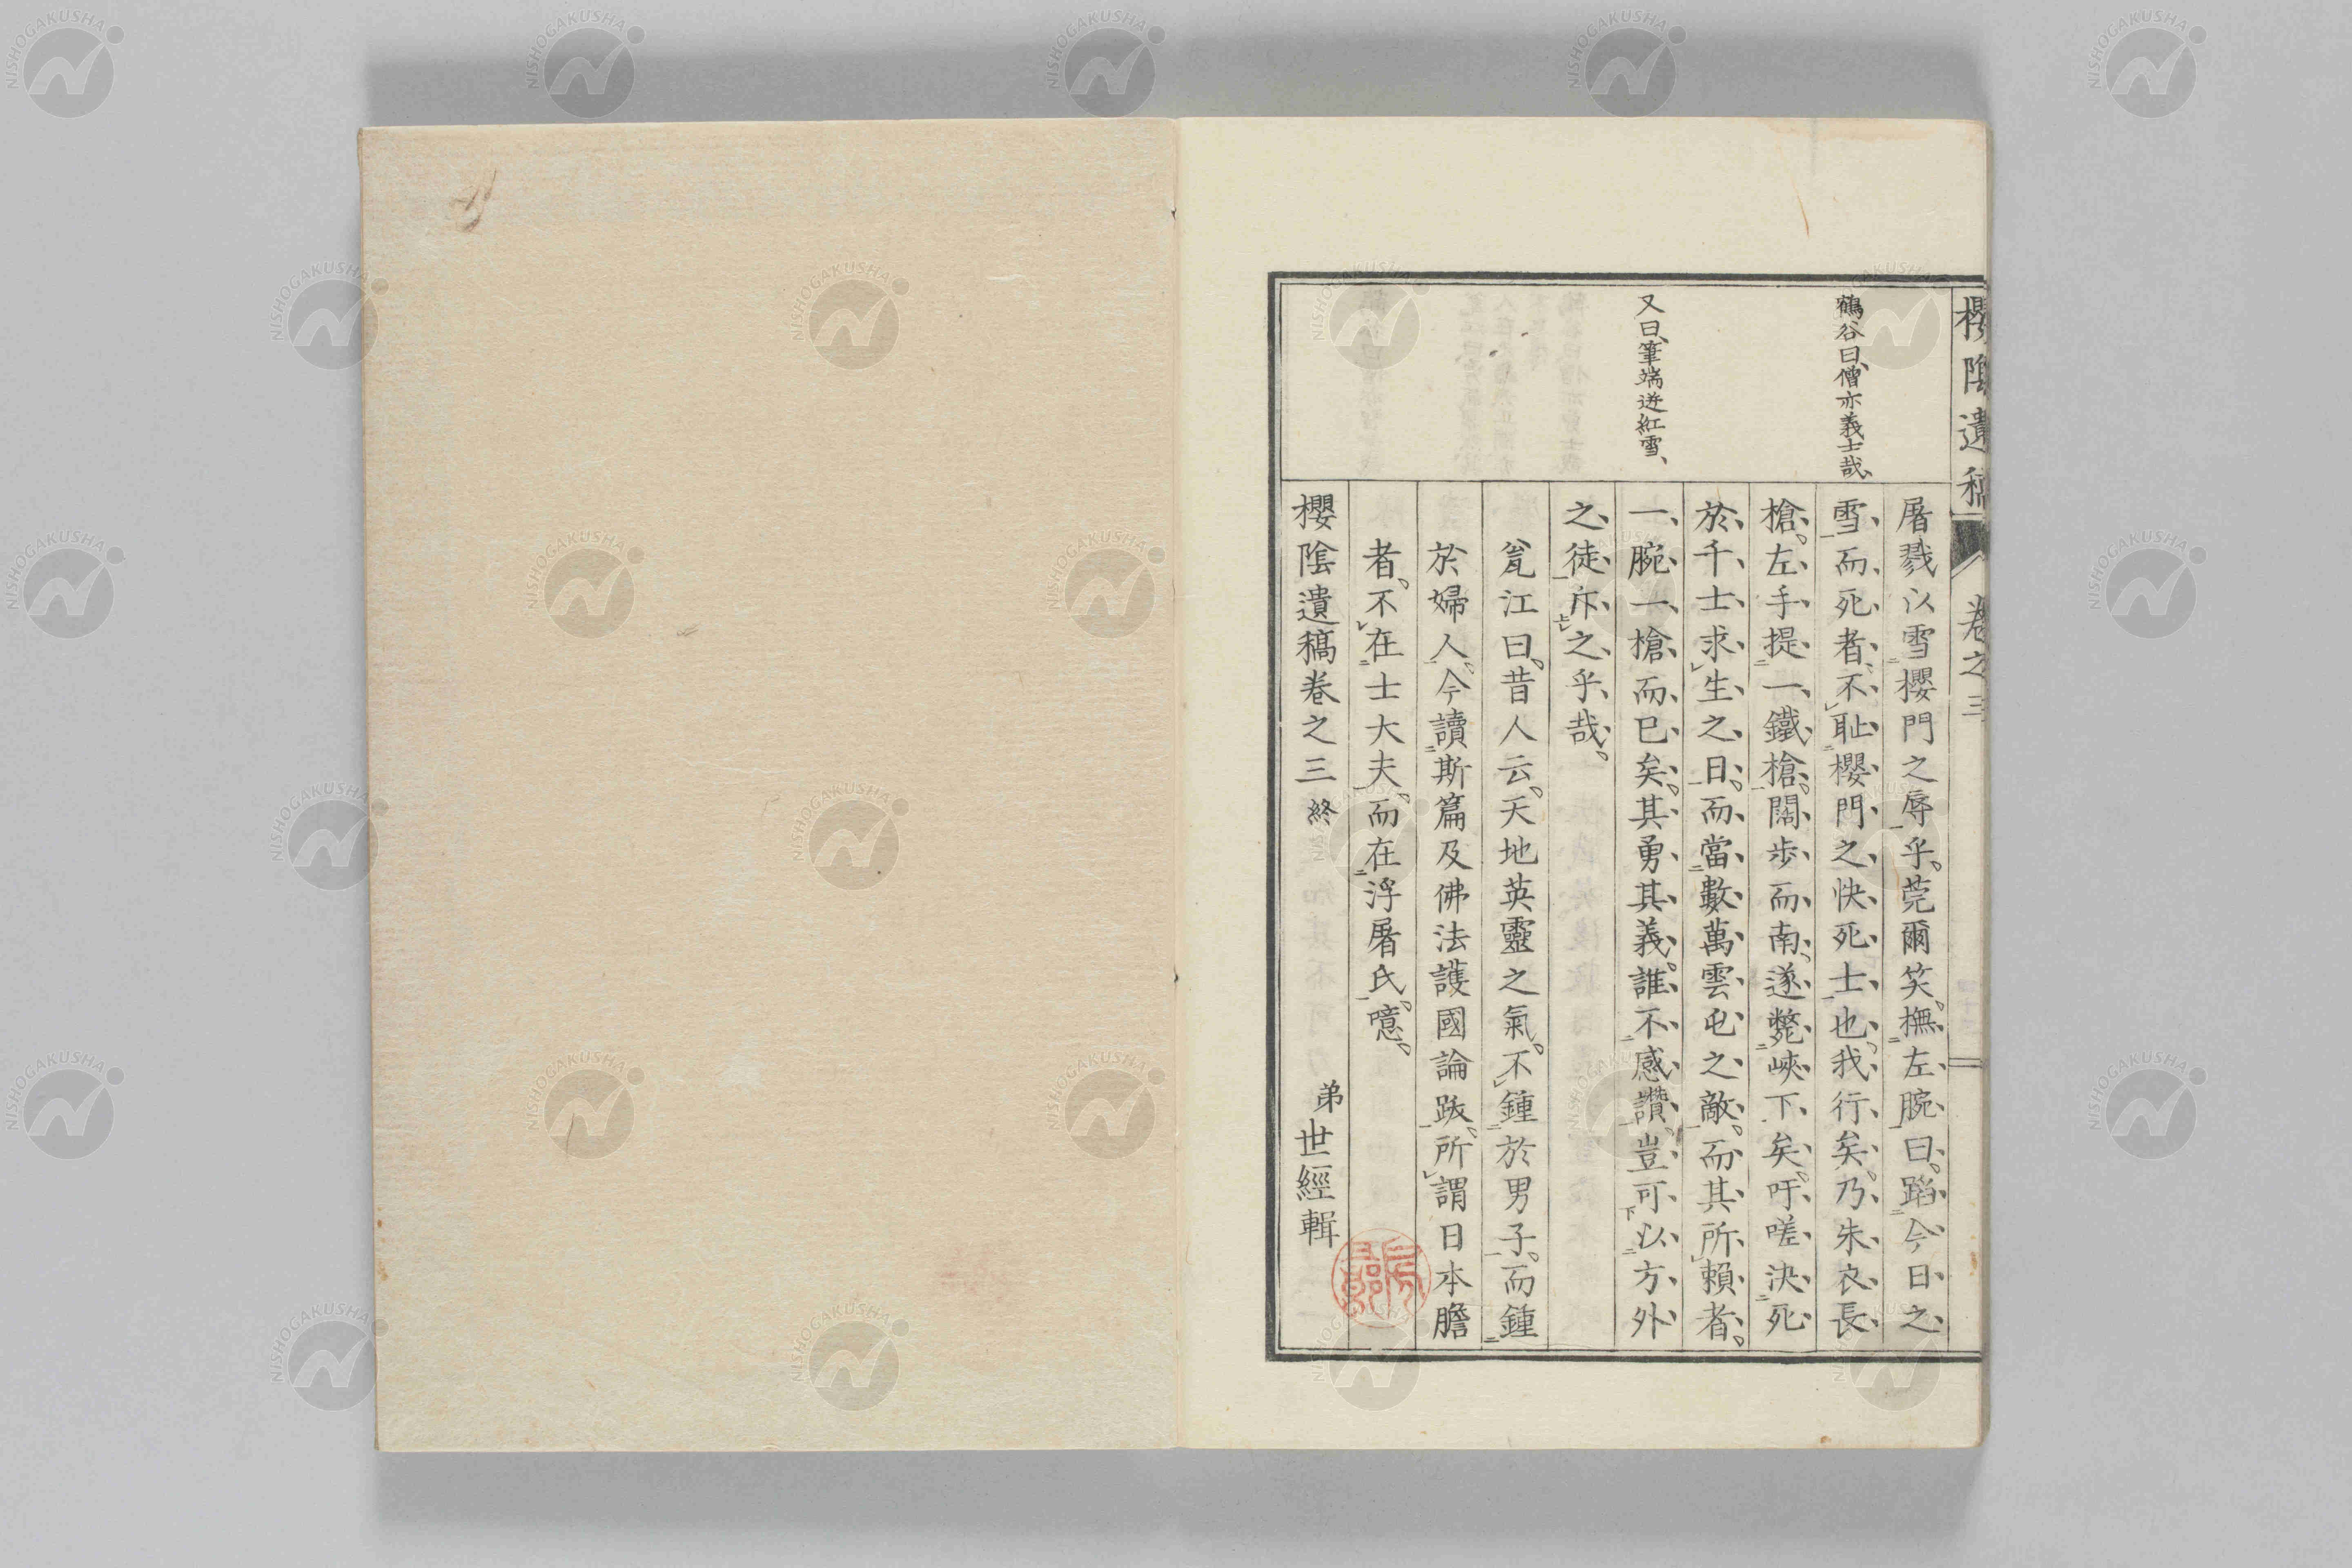 櫻陰遺稿 卷之三
鶴谷曰、僧亦義士哉、
又曰、筆端迸紅雪、
屠戮以雪櫻門之辱乎。莞爾笑。撫左腕曰。蹈今日之
雪而死者、不耻櫻門之快死士也。我行矣。乃朱衣長
槍。左手提一鐵槍。闊步而南、遂斃峽下矣。吁嗟決死
於千士求生之日。而當數萬雲屯之敵。而其所賴者。
一腕一槍而已矣。其勇其義。誰不感讚。豈可以方外
之徒斥之乎哉。
瓮江曰。昔人云。天地英靈之氣。不鍾於男子。而鍾
於婦人。今讀斯篇及佛法護國論跋。所謂日本膽
者。不在士大夫。而在浮屠氏。噫。
櫻陰遺稿卷之三 終
弟 世經輯
NISHOGAKUSHA